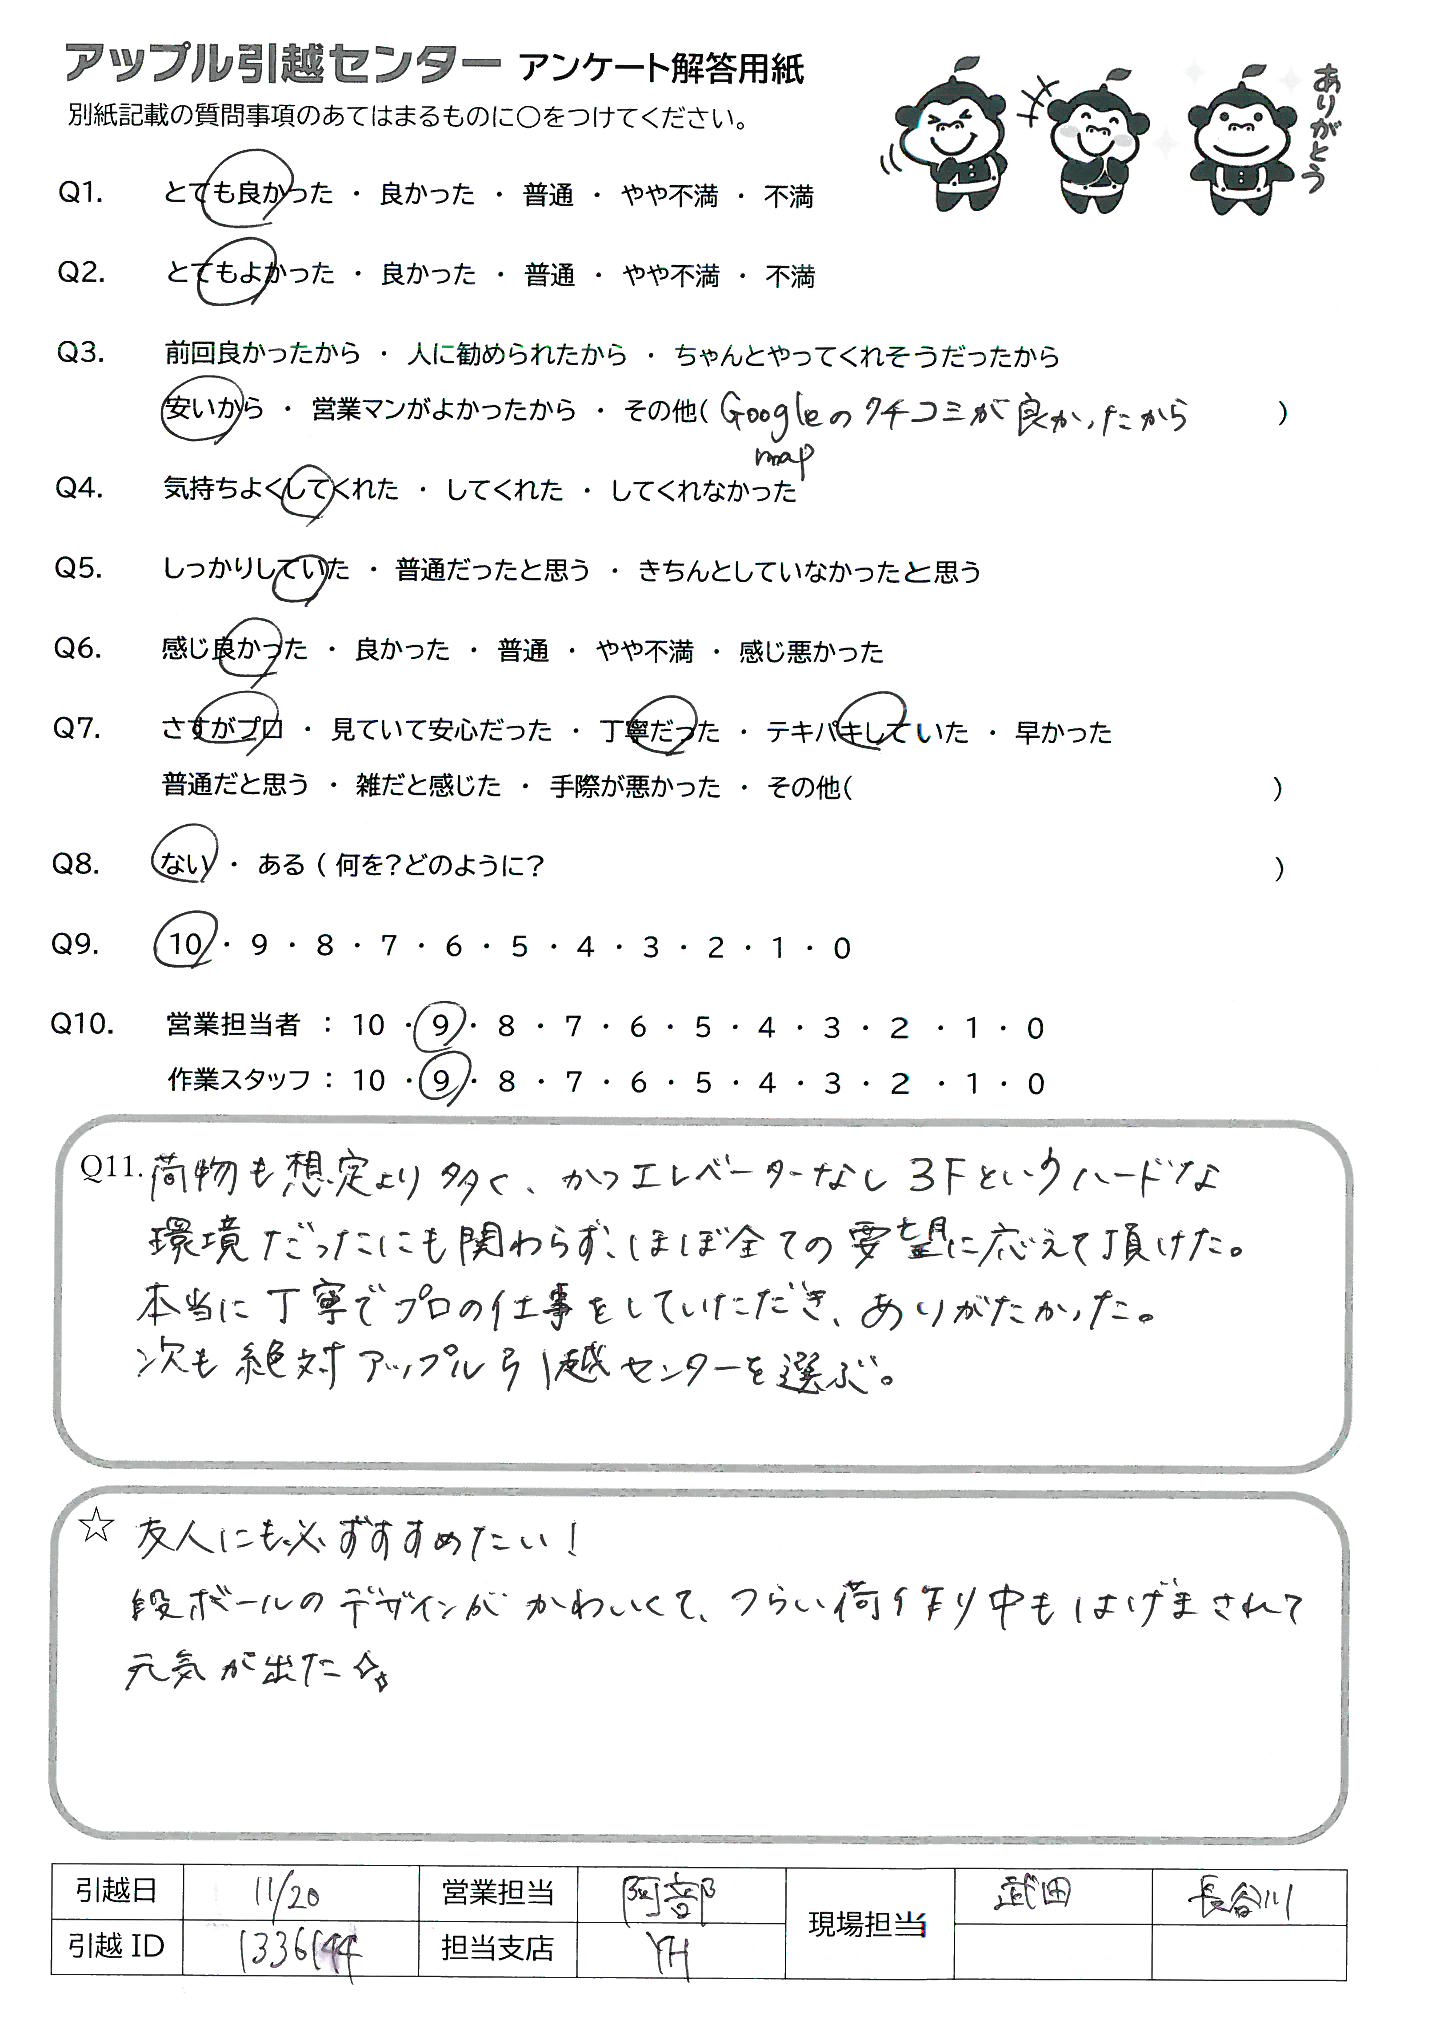 アップル引越センター アンケート解答用紙
別紙記載の質問事項のあてはまるものに〇をつけてください。
ありがとう
Q1. とても良かった ・ 良かった ・ 普通 ・ やや不満 ・ 不満
Q2. とてもよかった ・ 良かった ・ 普通 ・ やや不満 ・ 不満
Q3. 前回良かったから ・ 人に勧められたから ・ ちゃんとやってくれそうだったから
安いから ・ 営業マンがよかったから ・ その他( Googleのクチコミが良かったから )
map
Q4. 気持ちよくしてくれた ・ してくれた ・ してくれなかった
Q5. しっかりしていた ・ 普通だったと思う ・ きちんとしていなかったと思う
Q6. 感じ良かった ・ 良かった ・ 普通 ・ やや不満 ・ 感じ悪かった
Q7. さすがプロ ・ 見ていて安心だった ・ 丁寧だった ・ テキパキしていた ・ 早かった
普通だと思う ・ 雑だと感じた ・ 手際が悪かった ・ その他( )
Q8. ない ・ ある ( 何を?どのように? )
Q9. 10 ・ 9 ・ 8 ・ 7 ・ 6 ・ 5 ・ 4 ・ 3 ・ 2 ・ 1 ・ 0
Q10. 営業担当者 : 10 ・ 9 ・ 8 ・ 7 ・ 6 ・ 5 ・ 4 ・ 3 ・ 2 ・ 1 ・ 0
作業スタッフ : 10 ・ 9 ・ 8 ・ 7 ・ 6 ・ 5 ・ 4 ・ 3 ・ 2 ・ 1 ・ 0
Q11. 荷物も想定より多く、かつエレベーターなし3Fというハードな
環境だったにも関わらず、ほぼ全ての要望に応えて頂けた。
本当に丁寧でプロの仕事をしていただき、ありがたかった。
次も絶対アップル引越センターを選ぶ。
☆ 友人にも必ずすすめたい!
段ボールのデザインがかわいくて、つらい荷作り中もはげまされて
元気が出た
引越日 11/20 営業担当 阿部 現場担当 武田 長谷川
引越ID 担当支店 YH